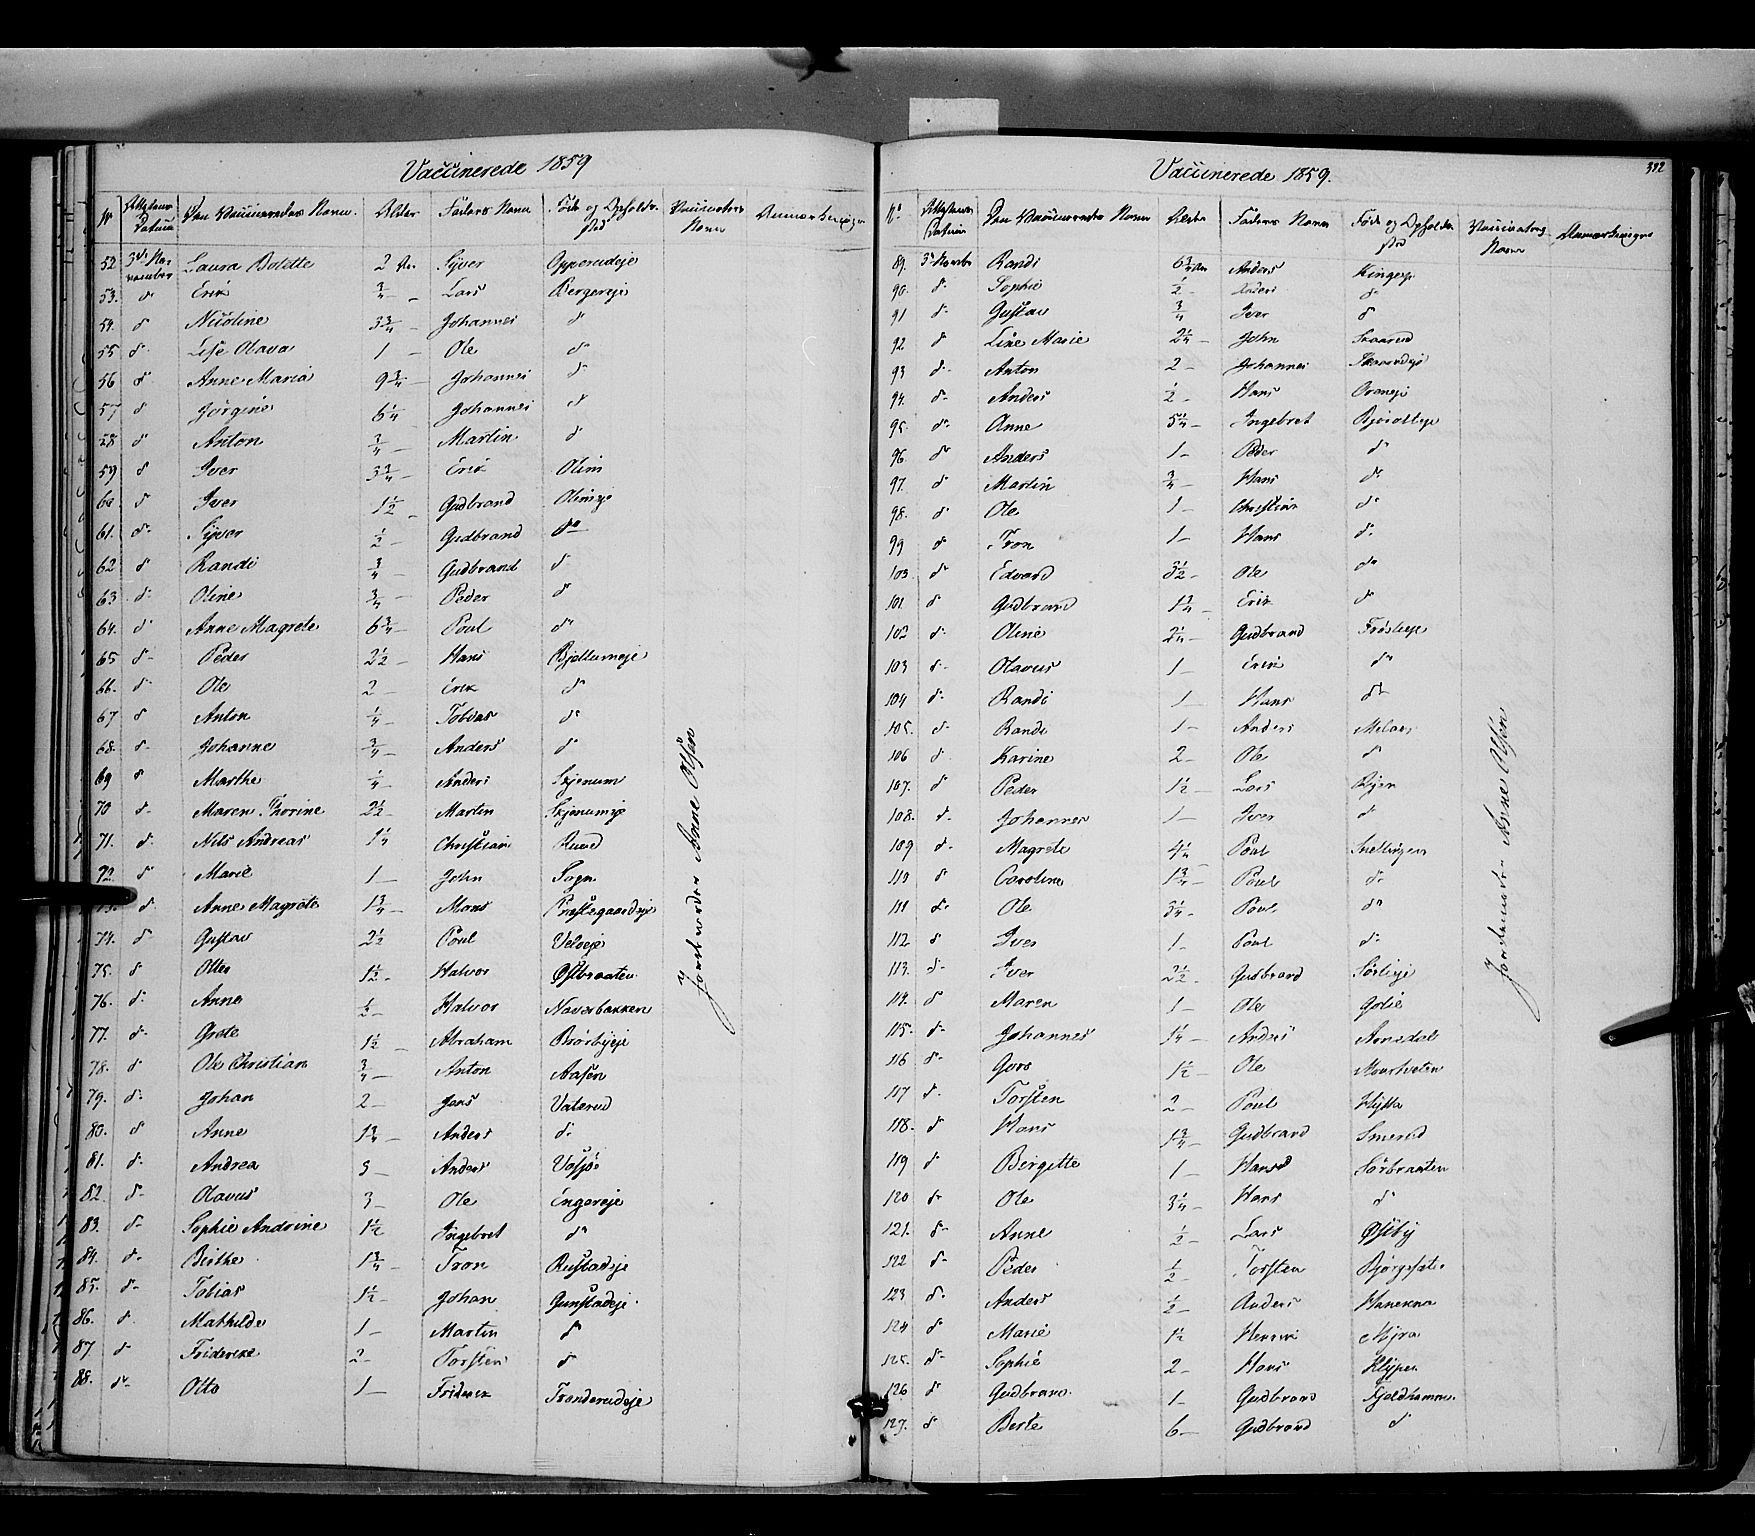 Vaccinerede 1859
No Attestens Datum Den Vaccineredes Navn. Alder Faders Navn Føde og Opholds-sted Vaccinators Navn Anmærkninger
52 3die November Laura Bolette 2 Aar Syver Opperudeje
53. do Erik 3/4 - Lars Bergereje
54. do Nicoline 3 3/4 - Johannes do
55 do Lise Olava 1 - Ole do
56 do Anne Maria 9 3/4 - Johannes do
57 do Jørgine 6 1/4 Johannes do
58 do Anton 3/4 - Martin do
59 do Iver 3 3/4 - Erik Olim
60 do Iver 1 1/2 - Gudbrand Olimeje
61. do Syver 1/2 - Gudbrand do
62 do Randi 3/4 - Gudbrand do
63 do Oline 3/4 - Peder do
64. do Anne Magrete 6 3/4 - Poul do
65 do Peder 2 1/2 - Hans Bjellumeje
66. do Ole 2 - Erik do
67 do Anton 1/4 - Tobias do
68. do Johanne 3/4 - Anders do
69 do Marthe 1/4 Anders Skjenum
70 do Maren Thorine 2 1/2 - Martin Skjenumeje
71. do Nils Andreas 1 1/4 Christian
72. do Marie 1 - John Sogn
73. do Anne Magrete 1 3/4 - Mons Præstegaardseje
74. do Gustav 2 1/2 Poul Velseje
75. do Otter 1 1/2 - Halvor Østbraaten
76. do Anne 1/2 - Halvor Naverbakken
77. do Grete 1 1/2 - Abraham Brørbyeje
78. do Ole Christian 3/4 - Anton Aasen
79. do Johan 2 - Jens Valerud
80. do Anne 1 3/4 - Anders do
81. do Andrea 3 - Anders Vasjø
82. do Olavus 3 - Ole Engereje
83. do Sophie Andrine 1 1/2 Ingebret do
84. do Birthe 1 3/4 - Tron Rustadeje
85. do Tobias 1 1/2 - Johan Gunstadeje
86. do Mathilde 1 - Martin do
87. do Friderike 2 - Torsten do
88. do Otto 1 - Friderik Tronderudeje
Jordemoder Anne Olsen
Vaccinerede 1859.
392
No Attestens Datum Den Vaccineredes Navn Alder Faders Navn Føde og Opholds-sted Vaccinators Navn Anmærkninger
89. 3die Novbr Randi 6 3/4 Aar Anders Ringeje
90. do Sophie 1/2 - Anders do
91 do Gustav 3/4 Iver do
92 do Line Marie 2 1/4 - John Skaarud
93 do Anton 2 - Johannes Skaarudeje
94. do Anders 1/2 - Hans
95. do Anne 5 1/4 - Ingebret
96. do Anders 1 - Peder do
97. do Martin 3/4 - Hans do
98. do Ole 1 - Christian do
99 do Tron 1 - Hans do
103. do Edvard 3 1/2 - Ole do
101 do Gudbrand 1 3/4 - Erik do
102 do Oline 2 1/4 - Gudbrand
103 do Olavus 1 - Erik do
104 do Randi 1 - Hans do
105. do Randi 1 - Anders
106 do Karine 2 - Ole do
107. do Peder 1 1/2 - Lars
108. do Johannes 1 - Iver do
109 do Magrete 4 1/4 - Poul Snellingen
110 do Caroline 1 3/4 - Poul do
111 do Ole 3 1/4 - Poul do
112 do Iver 1 - Poul do
113. do Iver 2 1/2 - Gudbrand Sørlieje
114. do Maren 1 - Ole Golie
115. do Johannes 1 1/4 - Anders Arnedal
116 do Guro 1 1/2 - Ole
117 do Torsten 2 - Poul Hytta
118. do Hans 1 3/4 - Gudbrand Smerud
119 do Birgitte 1 - Hans Sørbraaten
120 do Ole 3 1/4 - Hans do
121. do Anne 1/2 - Lars Østby
122 do Peder 1/2 - Torsten
123 do Anders 1/2 - Anders Hanekna
124 do Marie 1 1/2 Henrik Myra
125. do Sophie 2 - Hans Klypen
126 do Gudbrand 1 - Gudbrand Fjeldhammer
127. do Berte 6 - Gudbrand do
Jordemoder Anne Olsen